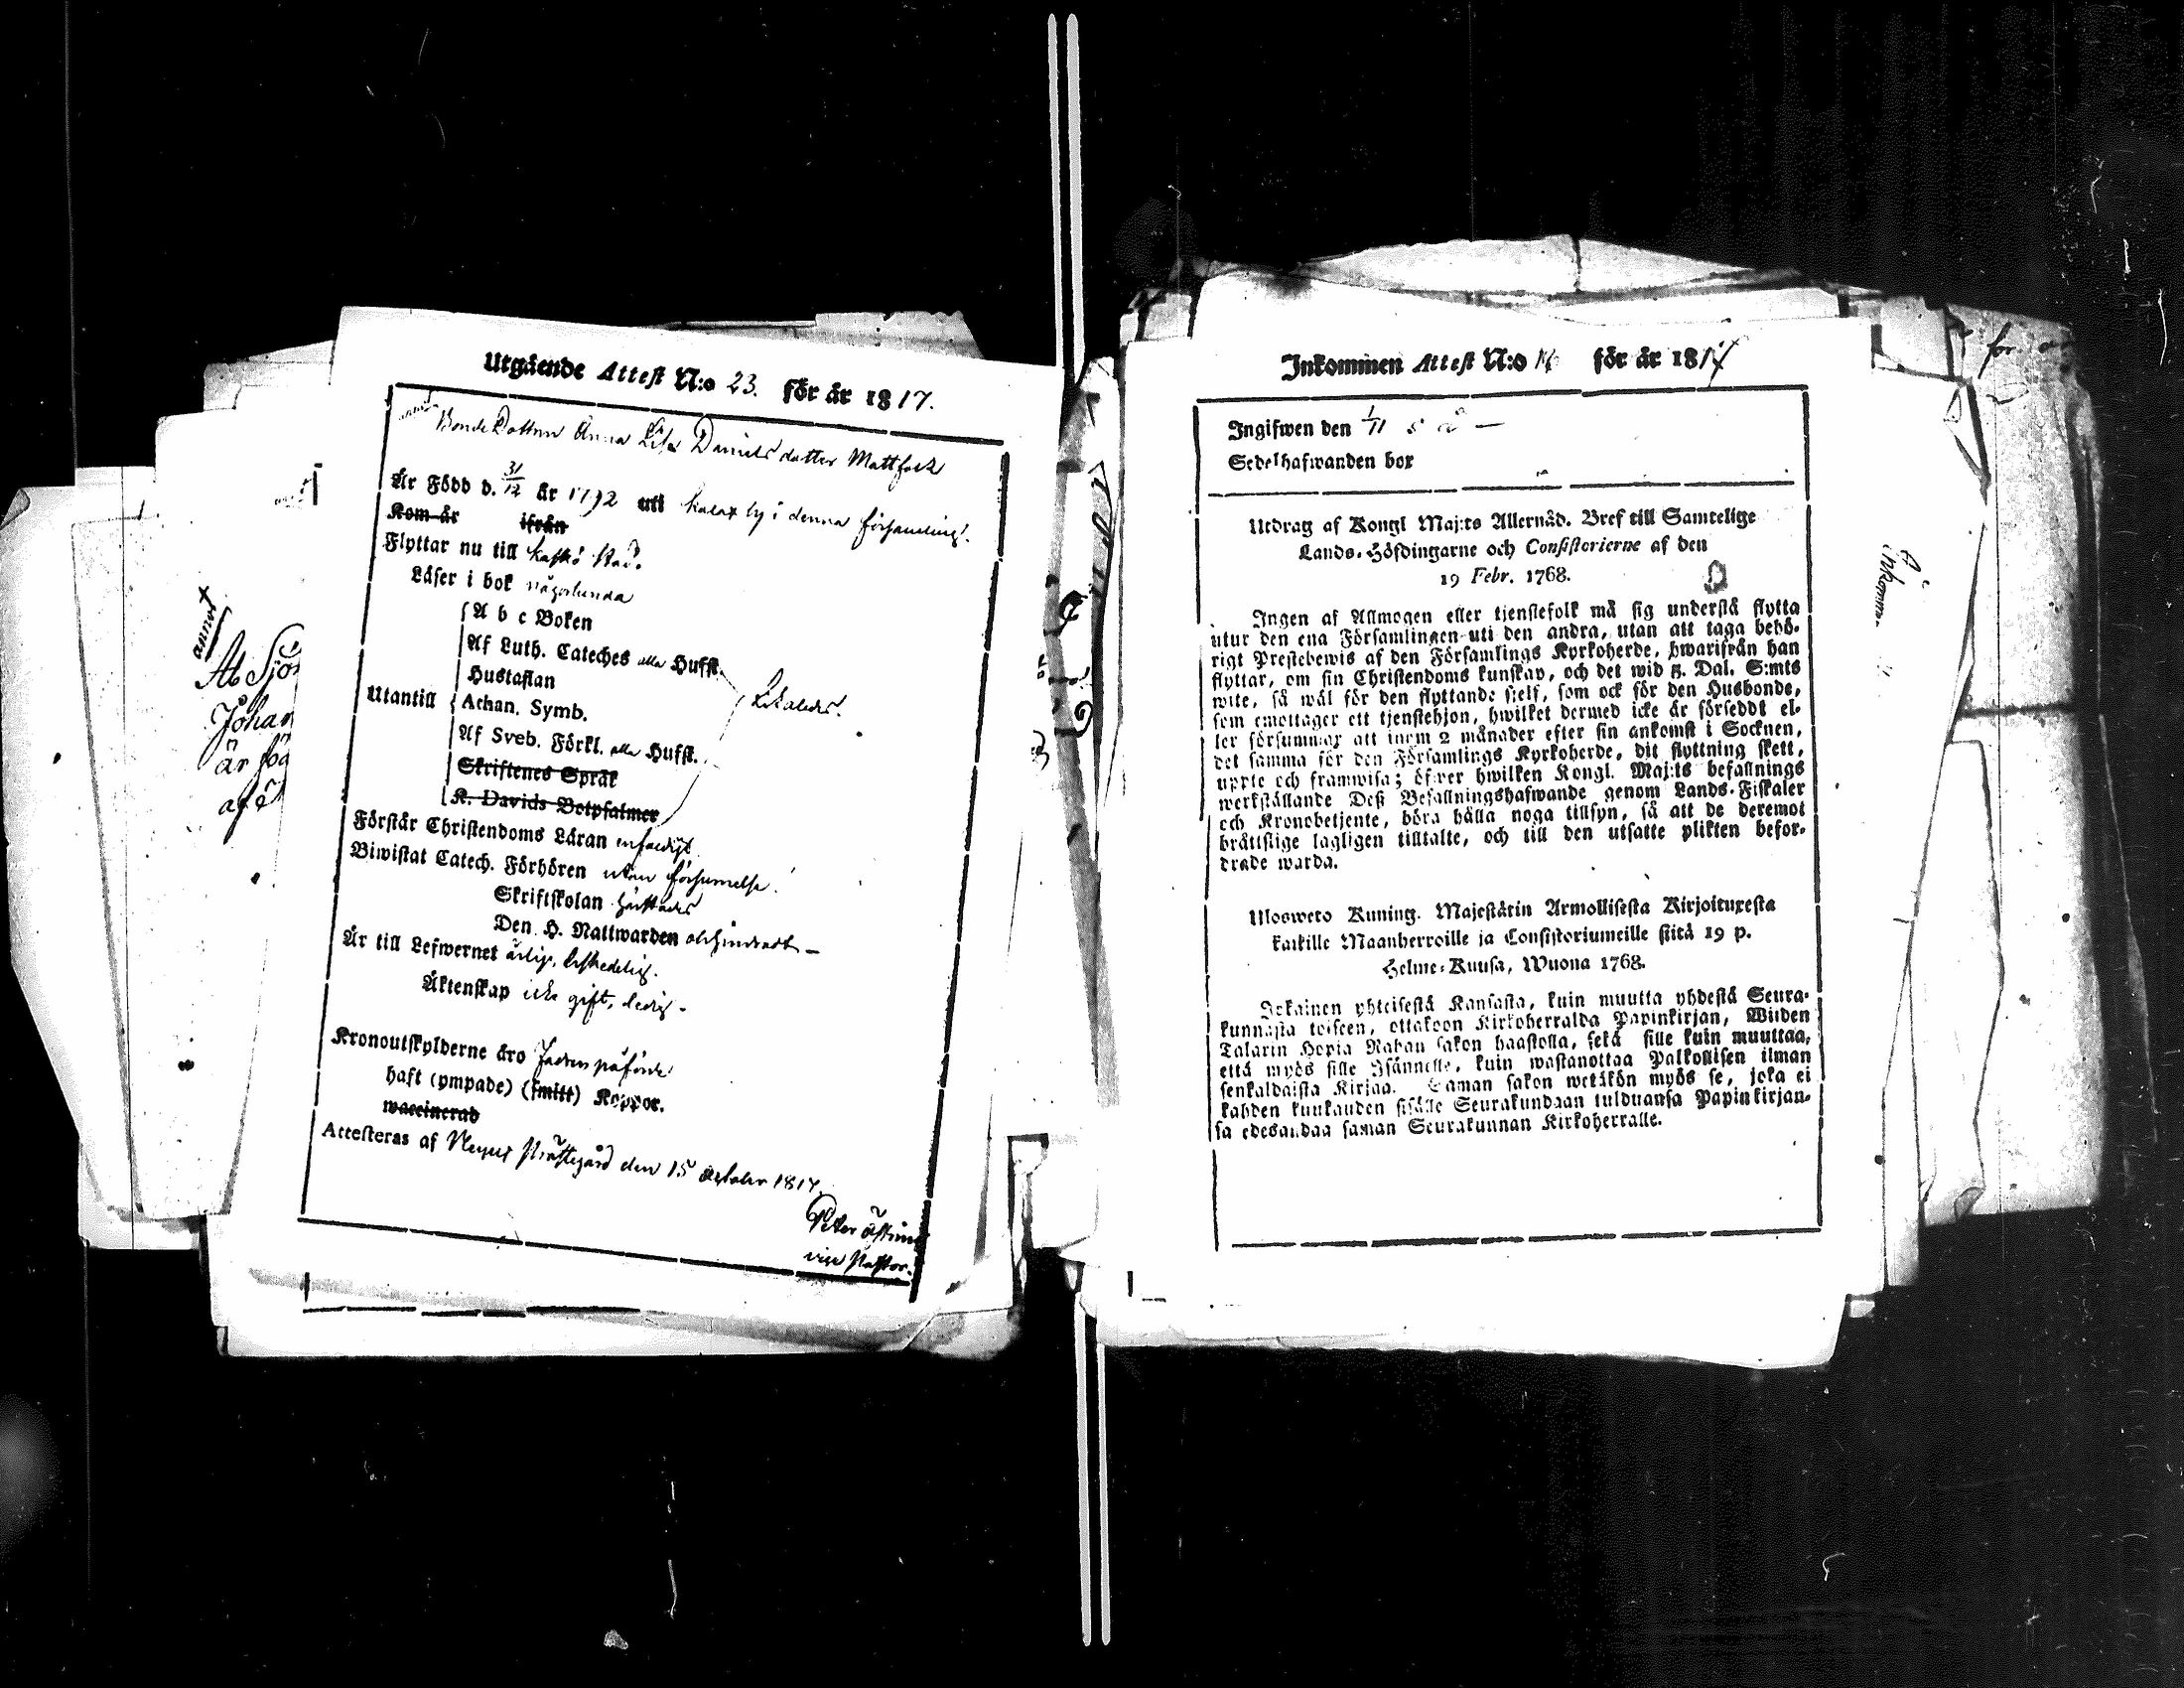 Utgående Attest N:o 23. för år 1817.
Bonde Dottren Anna Lisa Danielsdotter Mattfolk
Är Född d. 31/12 år 1792 uti Kalax by i denna församling.
Kom år ifrån
Flyttar nu till Kaskö Stad.
Läser i bok någorlunda
A b c Boken
Af Luth. Cateches alla Hufst.
Hustaflan
Utantill
Athan. Symb.
Af Sveb. Förkl. alla Hufst.
Skriftenes Språk
K. Davids Botpsalmer
Likaledes.
Förstår Christendoms Läran enfaldigt
Biwistat Catech. Förhören utan försumelse.
Skriftskolan härstädes
Den H. Nattwarden obehindradt —
Är till Lefwernet ärlig, beskedelig.
Äktenskap icke gift, ledig.
Kronoutskylderne äro Fadren påförde
haft (ympade) (smitt) Koppor.
waccinerad
Attesteras af Prästegård den 15 October 1817.
Peter
vice Pastor.
annot
At Sjö
Johan
är föd
af
Inkommen Attest N:o 16 för år 1817
Ingifwen den 1/11 s å —
Sedelhafwanden bor
Utdrag af Kongl Maj:ts Allernåd. Bref till Samtelige
Lands-Höfdingarne och Consistorierne af den
19 Febr. 1768.
Ingen af Allmogen eller tjenstefolk må sig understå flytta
utur den ena Församlingen uti den andra, utan att taga behö-
rigt Prestebewis af den Församlings Kyrkoherde, hwarifrån han
flyttar, om sin Christendoms kunskap, och det wid 5. Dal. S:mts
wite, så wäl för den flyttande sjelf, som ock för den Husbonde,
som emottager ett tjenstehjon, hwilket dermed icke är försedt el-
ler försummar att inom 2 månader efter sin ankomst i Socknen,
det samma för den Församlings Kyrkoherde, dit flyttning skett,
uppte och framwisa; öfwer hwilken Kongl. Maj:ts befallnings
werkställande Deß Befallningshafwande genom Lands-Fiskaler
och Kronobetjente, böra hålla noga tillsyn, så att de deremot
bråttslige lagligen tilltalte, och till den utsatte plikten befor-
drade warda.
Ulosweto Kuning. Majestätin Armollisesta Kirjoituxesta
kaikille Maanherroille ja Consistoriumeille siitä 19 p.
Helme-Kuusa, Wuona 1768.
Jokainen yhteisestä Kansasta, kuin muutta yhdestä Seura-
kunnasta toiseen, ottakoon Kirkoherralda Papinkirjan, Wiiden
Talarin Hopia Rahan sakon haastolla, sekä sille kuin muuttaa,
että myös sille Isännelle, kuin wastanottaa Palkollisen ilman
senkaldaista Kirjaa. Saman sakon wetäkön myös se, joka ei
kahden kuukauden sisälle Seurakundaan tulduansa Papinkirjan-
sa edesandaa saman Seurakunnan Kirkoherralle.